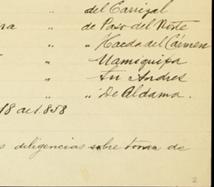 " " del Carrizal
ra " de Paso del Norte
" " Hacda del Cármen
" " Namiquipa
" " Sn Andres
" " De Aldama.
18 de 1858
s diligencias sobre toma de
2